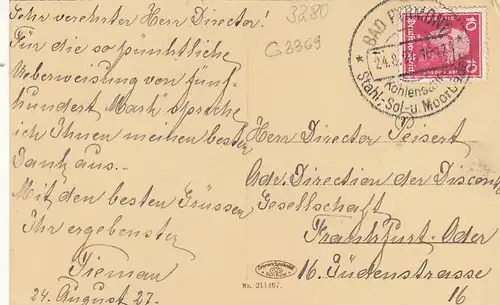 Sehr verehrter Herr Director!
Für die so pünktliche
Ueberweisung von fünf-
hundert Mark spreche
ich Ihnen meinen besten
Dank aus...
Mit den besten Grüssen
Ihr ergebenster
Tieman
24. August 27.
3280
G3369
BAD PYRMONT
24.8.
Kohlensä
Stahl-, Sol- u. Moorb
10 10
Herrn Director Peisert
Adr. Direction der Disconto
Gesellschaft
Frankfurt-Oder
16. Judenstrasse
16
Nr. 211457.